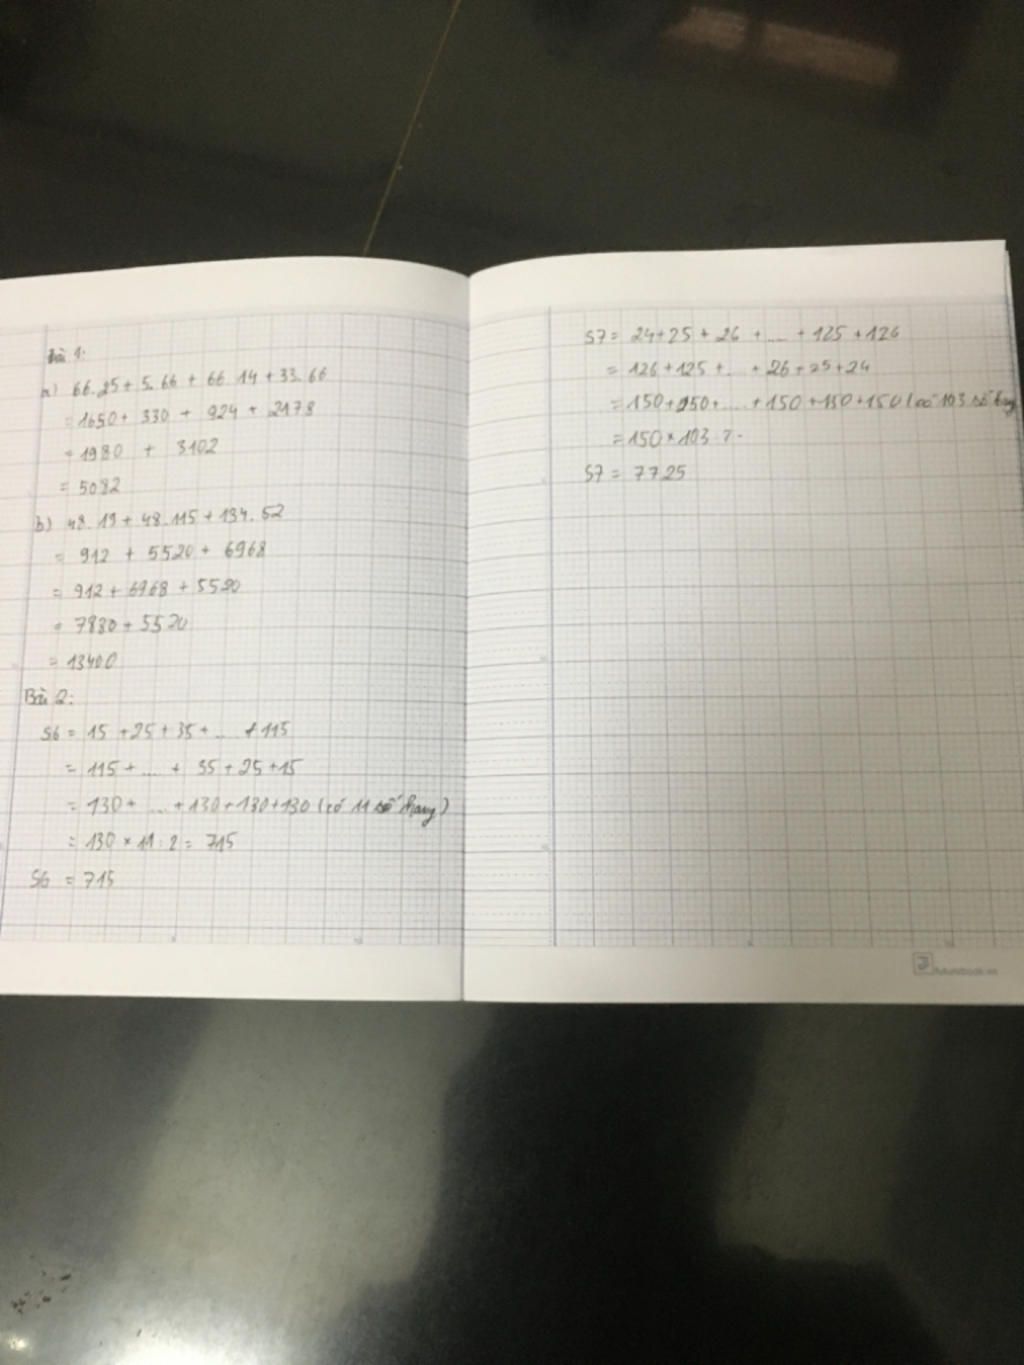 Bài 1:
a) 66.25 + 5.66 + 66.14 + 33.66
= 1650 + 330 + 924 + 2178
= 1980 + 3102
= 5082
b) 48.19 + 48.115 + 134.52
= 912 + 5520 + 6968
= 912 + 6968 + 5520
= 7880 + 5520
= 13400
Bài 2:
S6 = 15 + 25 + 35 + ... + 115
= 115 + ... + 35 + 25 + 15
= 130 + ... + 130 + 130 + 130 (có 11 số hạng)
= 130 × 11 : 2 = 715
S6 = 715
S7 = 24 + 25 + 26 + .... + 125 + 126
= 126 + 125 + ... + 26 + 25 + 24
= 150 + 150 + .... + 150 + 150 + 150 (có 103 số hạng
= 150 × 103 : 2
S7 = 7725